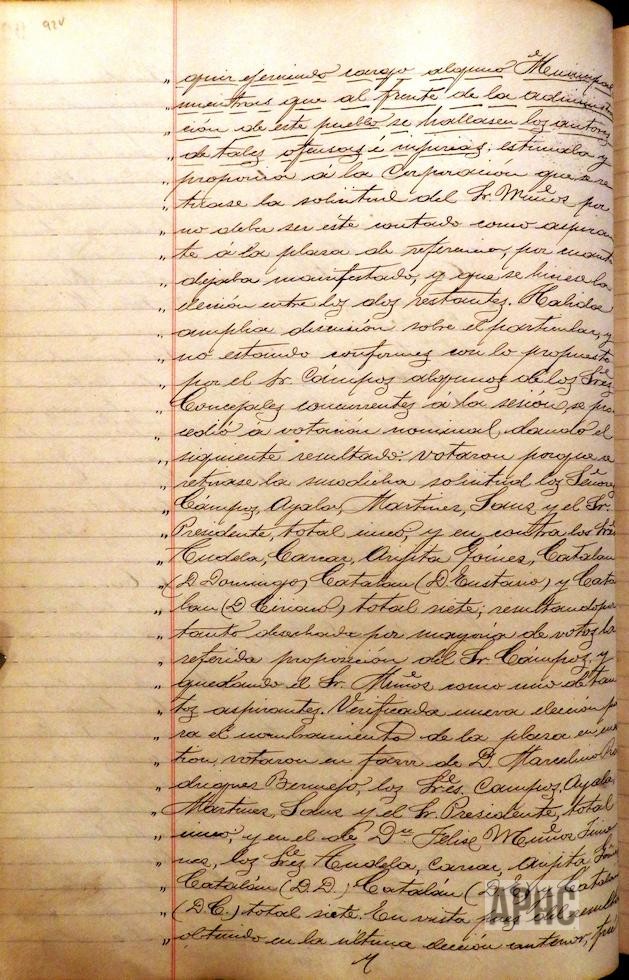 92v
„ guir ejerciendo cargo alguno Municipal
„ mientras que al frente de la administra
„ ción de este pueblo se hallasen los autores
„ de tales ofensas é injurias, estimaba y
„ proponia á la Corporación que se re
„ tirase la solicitud del Sr. Muñoz por
„ no deber ser este contado como aspiran
„ te á la plaza de referencia, por cuanto
„ dejaba manifestado, y que se hiciese la
„ elección entre los dos restantes. Habida
„ amplia discusión sobre el particular, y
„ no estando conformes con lo propuesto
„ por el Sr. Cámpos algunos de los Sres
„ Concejales concurrentes á la sesión, se pro
„ cedió á votación nominal, dando el
„ siguiente resultado: votaron porque se
„ retirase la susodicha solicitud los Señores
„ Cámpos, Ayala, Martinez, Sanz y el Sr.
„ Presidente, total cinco, y en contra los Sres
„ Tudela, Carcar, Arpita Goínes, Catalán
„ (D. Domingo) Catalán (D. Eustasio) y Cata
„ lan (D. Ciriaco) total siete; resultando por
„ tanto desechada por mayoría de votos la
„ referida proposición del Sr. Cámpos, y
„ quedando el Sr. Muñoz como uno de tan
„ tos aspirantes. Verificada nueva elección pa
„ ra el nombramiento de la plaza en cues
„ tion, votaron en favor de D. Marcelino Ro
„ driguez Bermejo, los Sres. Campos, Ayala,
„ Martinez, Sanz y el Sr. Presidente, total
„ cinco, y en el de Dn. Felix Muñoz Jime
„ nez, los Sres Tudela, Carcar, Arpita
„ Catalán (D.D.) Catalán (D.E.) y Catalán
„ (D.C.) total siete. En vista pues del resulta
„ obtenido en la última elección anterior, fué
APHC